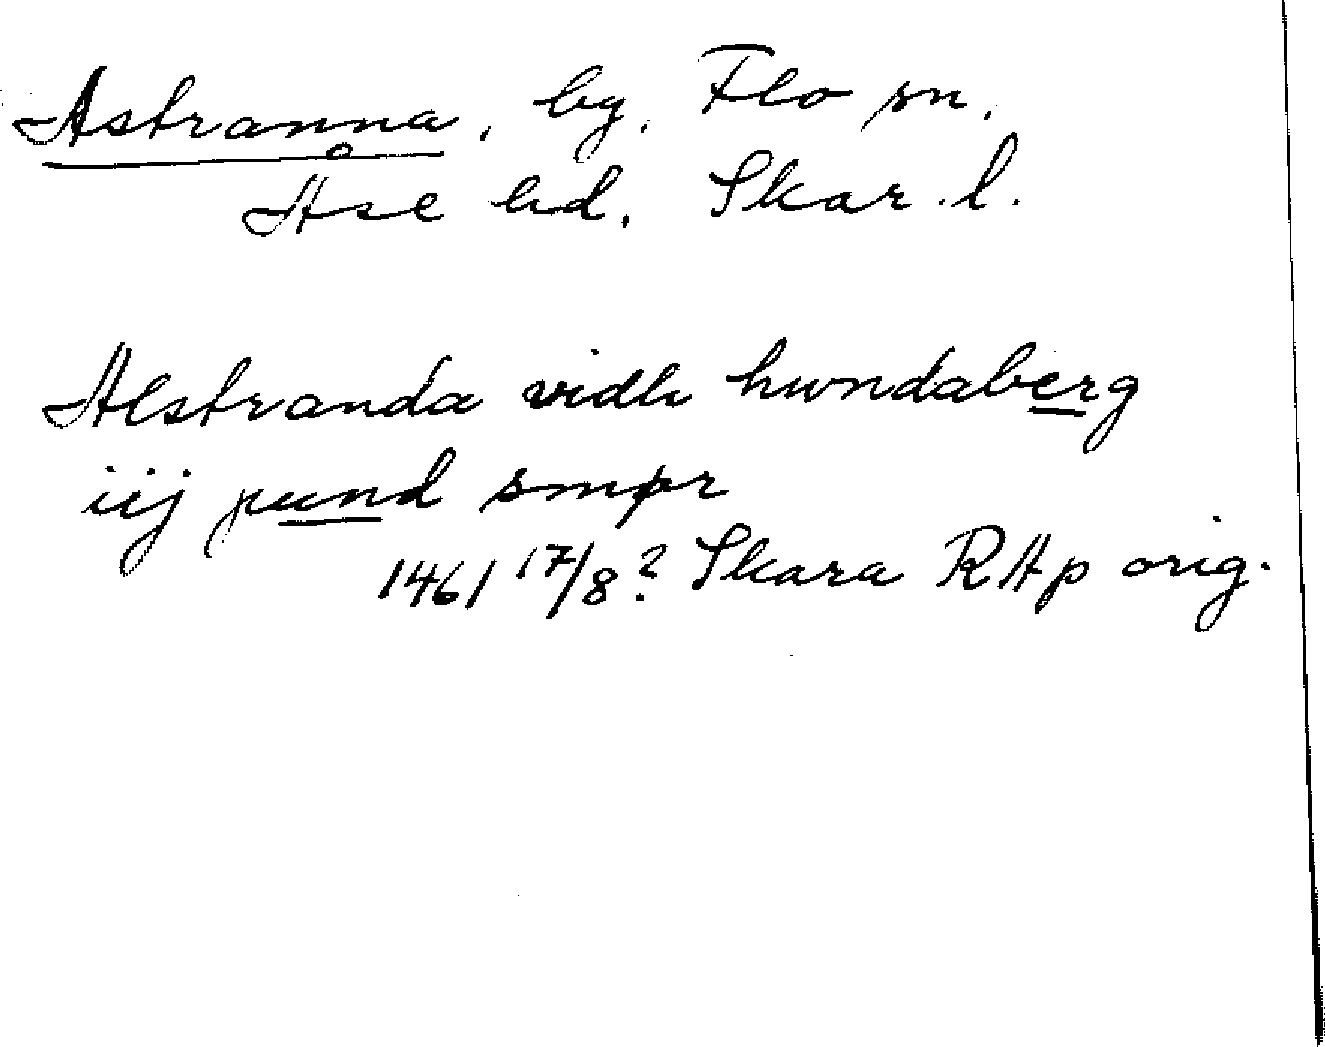 Astranna, by, Flo sn,
Åse hd, Skar. l.
Alstranda vidh hwndaberg
iij pund smør
1461 17/8? Skara RAp orig.